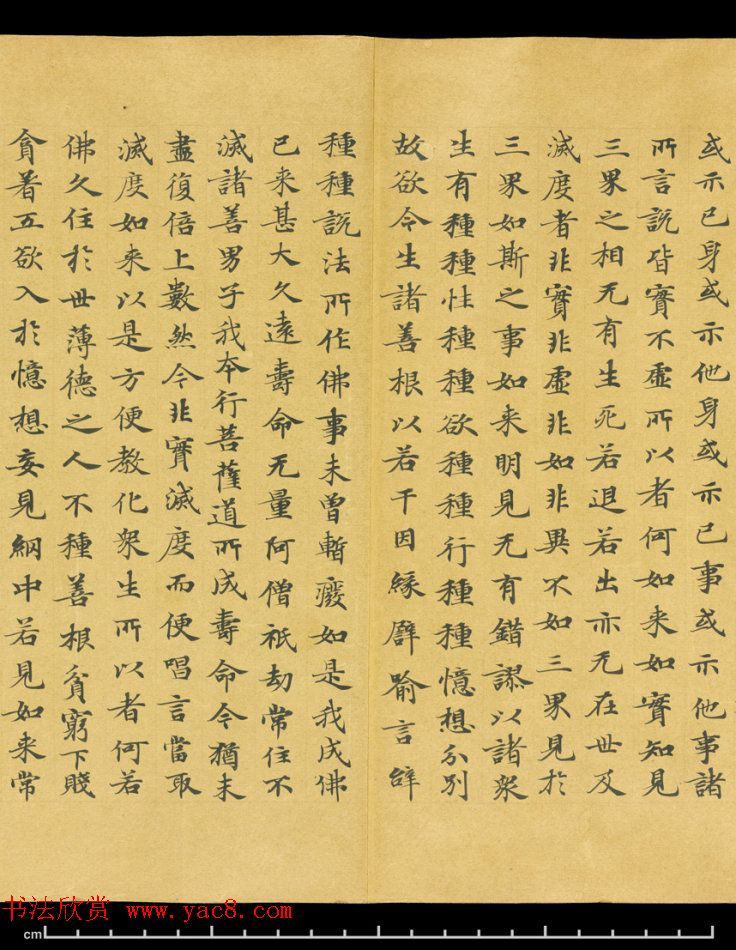 或示己身或示他身或示己事或示他事諸
所言說皆實不虛所以者何如来如實知見
三界之相无有生死若退若出亦无在世及
滅度者非實非虛非如非異不如三界見於
三界如斯之事如来明見无有錯謬以諸衆
生有種種性種種欲種種行種種憶想分別
故欲令生諸善根以若干因緣譬喻言辝
種種說法所作佛事未曾暫癈如是我成佛
已来甚大久遠壽命无量阿僧祇劫常住不
滅諸善男子我本行菩薩道所成壽命今猶未
盡復倍上數然今非實滅度而便唱言當取
滅度如来以是方便教化衆生所以者何若
佛久住於世薄德之人不種善根貧窮下賤
貪著五欲入於憶想妄見網中若見如来常
书法欣赏 www.yac8.com
cm